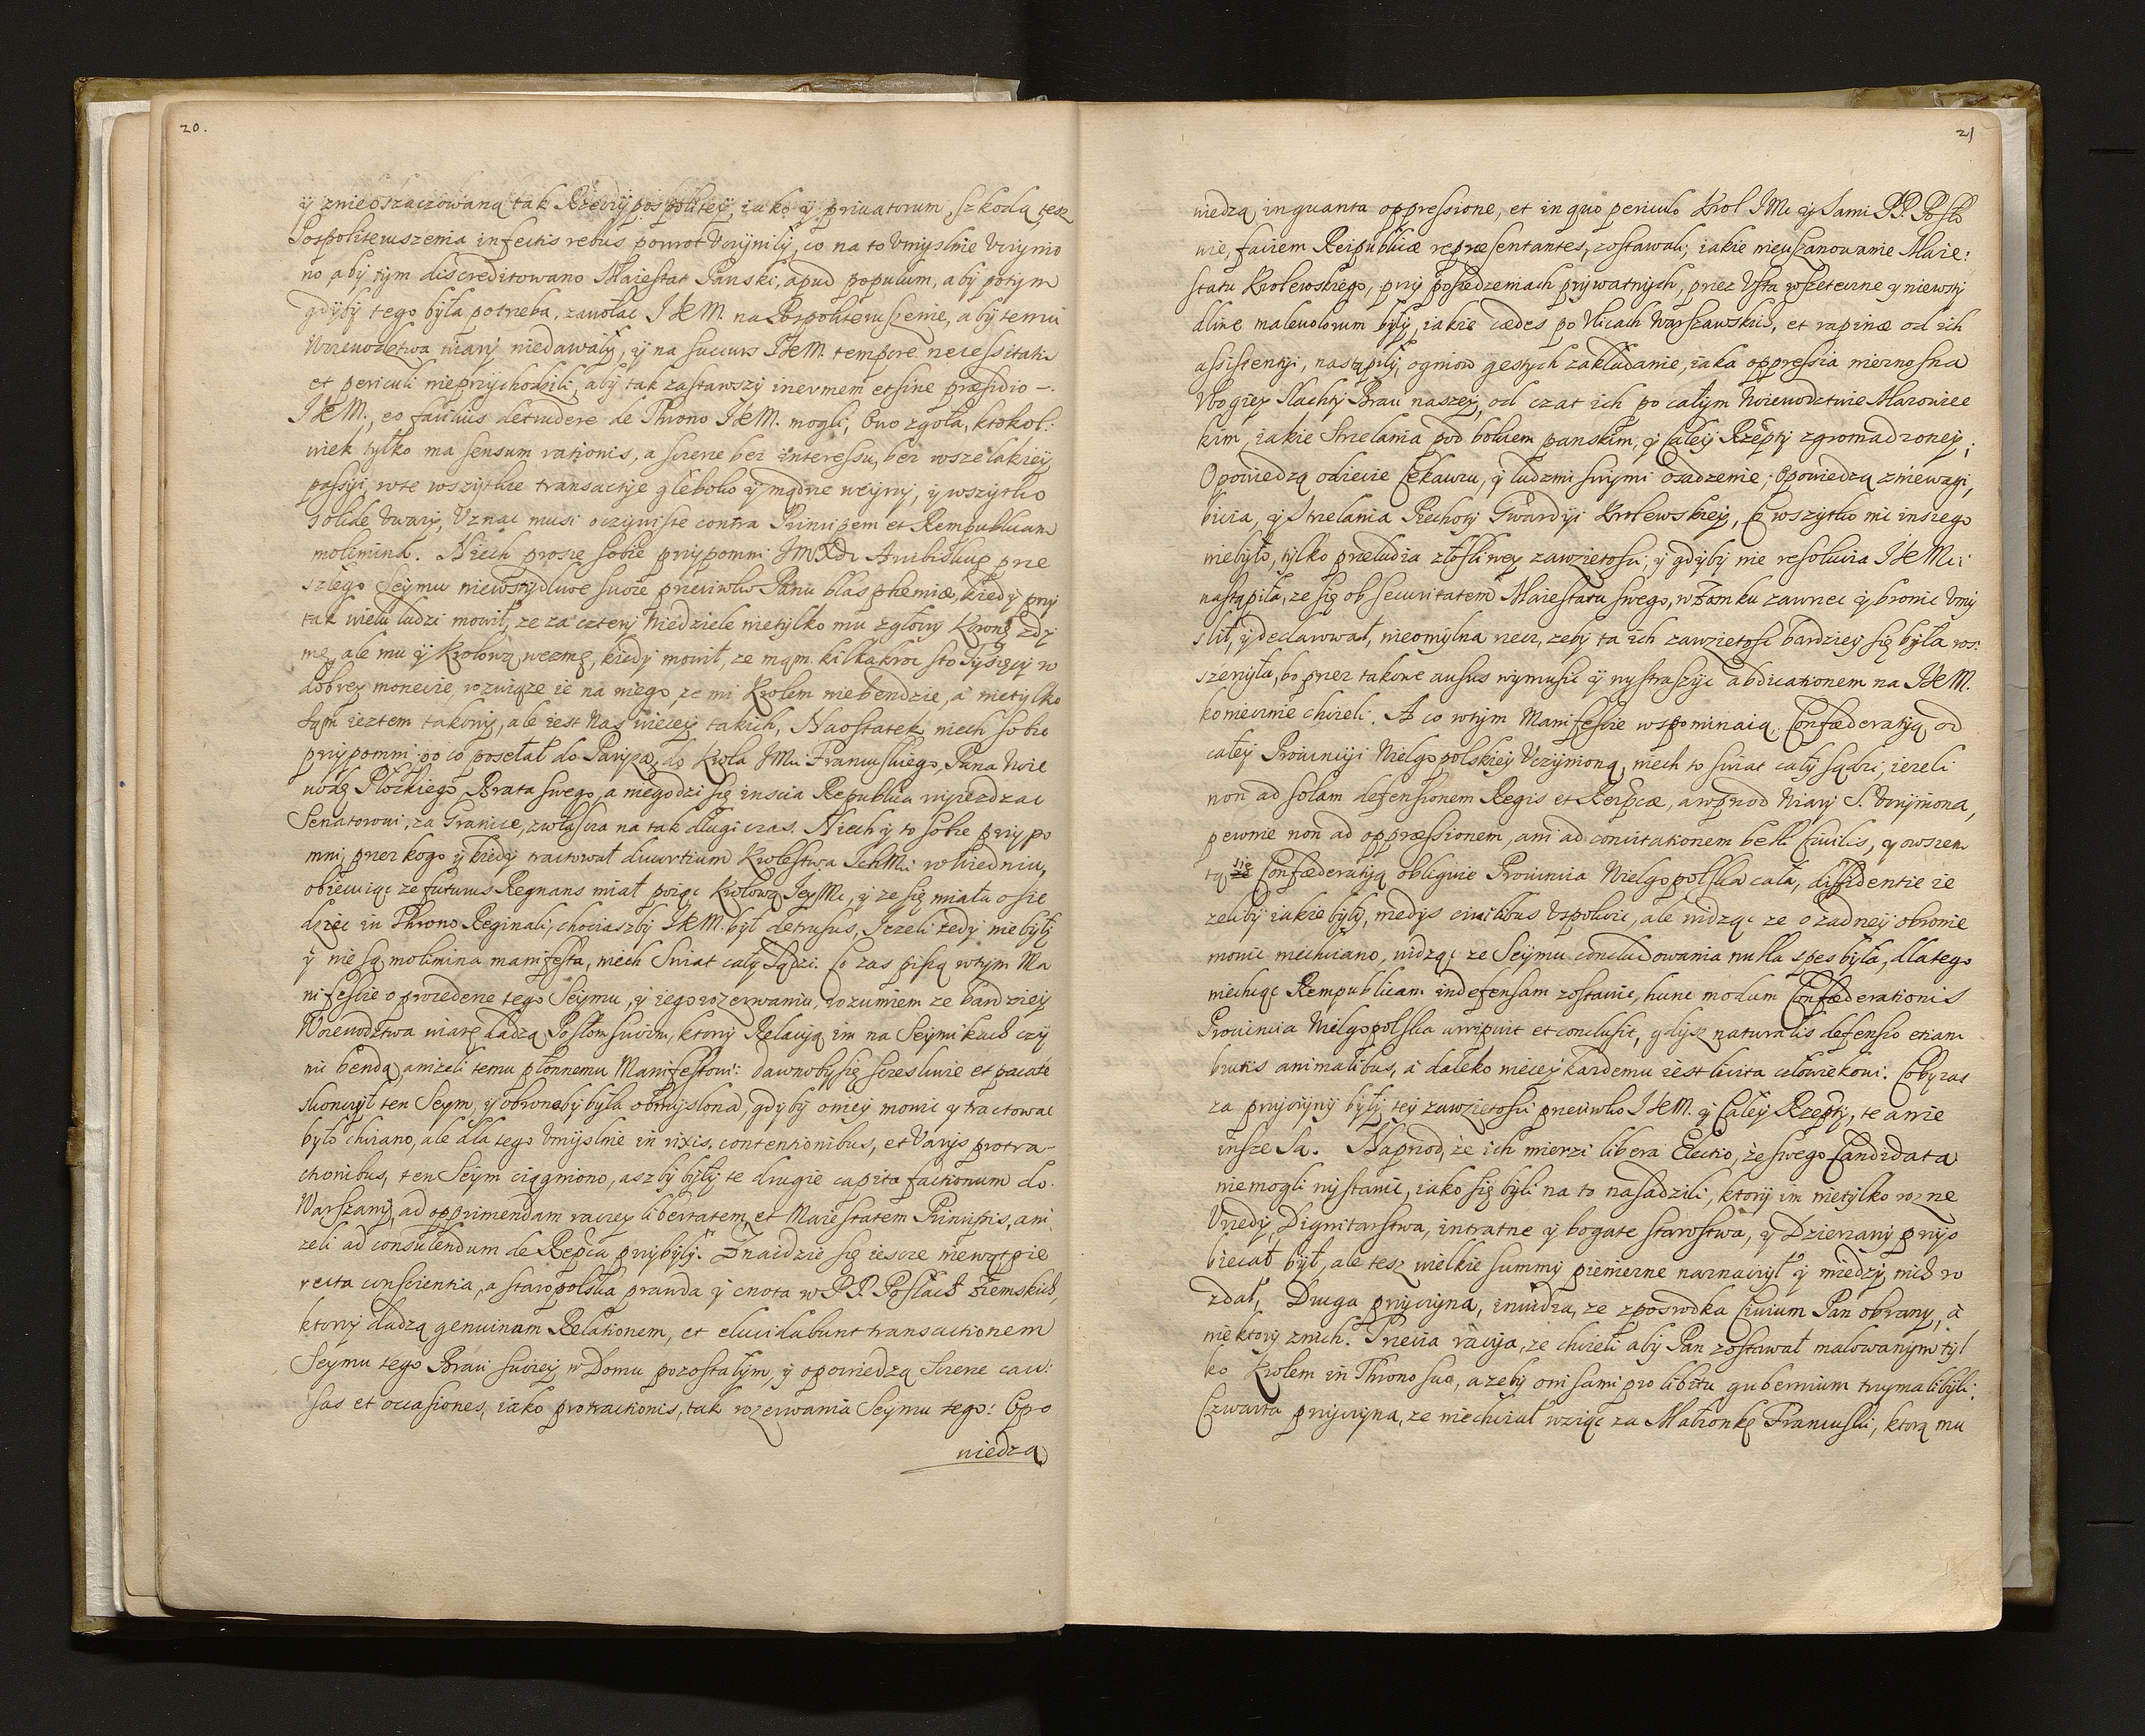 20.
ÿ znieoszaczowaną tak Rzeczÿpospoliteÿ, iako ÿ priuatorum szkodą, tesz
Pospoliteruszenia infectis rebus powrot Vczÿnilÿ, co na to Vmyslnie Vczynio
no abÿ tÿm discreditowano Maiestat Panski, apud populum, abÿ potÿm
gdÿbÿ tego bÿła potrzeba, zawołac JKM. na Pospoliteruszenie, abÿ temu
Woiewodztwa wiarÿ niedawałÿ, ÿ na succurs JKM. tempore necessitatis
et periculi nieprzÿchodzili, abÿ tak zastawszÿ inermem et sine præsidio –.
JKM., eo facilius detrudere de Throno JKM. mogli, Owo zgoła, ktokol:
wiek tÿlko ma sensum rationis, a szczerze bez interessu, bez wszelakieÿ
passÿi, wte wszÿtkie transactÿe głeboko ÿ mądrze weÿrzÿ, ÿ wszÿtko
solide Vwazÿ, Vznac musi oczÿwiste contra Principem et Rempublicam
molimina. Niech prosze sobie przÿpomni JmXdz Arcibiskup prze
szłego Seÿmu niewstÿdliwe swoie przeciwko Panu blasphemiæ, kiedÿ przÿ
tak wielu ludzi mowił, ze za czterÿ Niedziele nietÿlko mu zgłowÿ Koronę zdÿ
mę, ale mu ÿ Krolową wezmę, kiedÿ mowił, ze mąm kilkakroc sto Tÿsięcÿ w
dobreÿ monecie, rozwiąze ie na niego, ze mi Krolem niebendzie, a nietÿlko
sąm iestem takowÿ, ale iest Nas wiecey takich, Naostatek niech sobie
przÿpomni po co posełał do Parÿza, do Krola JMci Francuskiego, Pana Woie
wodę Płockiego Brata swego, a niegodzi się inscia Republica wÿiezdzac
Senatorowi, za Granice, zwłascza na tak długi czas. Niech ÿ to sobie przÿpo
mni, przez kogo ÿ kiedÿ tractował diuortium Krolestwa IchMci w Wiedniu,
obiecuiąc ze futurus Regnans miał poiąc Krolową JeyMc, ÿ ze się miała osie
dziec in Throno Reginali, chociaszbÿ JKM. bÿł detrusus, Jezeli tedÿ nie bÿłÿ
ÿ nie są molimina manifesta, niech Swiat całÿ Sądzi. Co zas piszą wtÿm Ma
nifescie o procederze tego Seÿmu, ÿ iego rozerwaniu, rozumiem ze bardzieÿ
Woiewodztwa wiarę dadzą Posłom swoim, ktorzÿ Relacÿą im na Seÿmikach czÿ
nic bendą, anizeli temu płonnemu Manifestowi: dawnobÿ się szczesliwie et pacate
skonczÿł ten Seym, ÿ obronabÿ bÿła obmÿslona, gdÿbÿ onieÿ mowic ÿ tractowac
było chciano, ale dla tego Vmÿslnie in rixis, contentionibus, et Varÿs protra-
ctionibus, ten Seÿm ciągniono, aszbÿ bÿłÿ te drugie capita factionum do
Warszawÿ, ad opprimendam raczey libertatem, et Maiestatem Principis, ani
zeli ad consulendum de Repca przÿbÿłÿ. Znaidzie się iescze niewątpie
recta conscientia, a staropolska prawda ÿ cnota w PP. Posłach Ziemskich,
ktorzÿ dadzą genuinam Relationem, et elucidabunt transactionem
Seÿmu tego Braci swoieÿ w Domu pozostałÿm, ÿ opowiedzą Szczerze cau:
sas et occasiones, iako protractionis, tak rozerwania Seÿmu tego: Opo
wiedzą
21
wiedzą in quanta oppressione, et in quo periculo Krol JMc ÿ Sami PP. Posło
wie, faciem Reipublicæ repræsentantes, zostawali, iakie nieuszanowanie Maie:
statu Krolewskiego, przÿ posiedzeniach prÿwatnÿch, przez Vsta wszeteczne ÿ niewstÿ
dliwe maleuolorum bÿłÿ, iakie cædes po Vlicach Warszawskich, et rapinæ od ich
assistentÿi, nastąpiłÿ, ogniow gestych zakładanie, iaka oppressia nieznosna
Vbogiey Slachtÿ Braci naszeÿ, od czat ich po całÿm Woiewodztwie Mazowiec
kim, iakie Strzelania pod bokiem panskim, ÿ całeÿ Rzeptÿ zgromadzoneÿ,
Opowiedzą odiecie Cekauzu, ÿ ludzmi swÿmi osadzenie, Opowiedzą zniewagi,
bicia, ÿ Strzelania Piechotÿ Gwardÿi Krolewskieÿ, co wszÿtko nic inszego
niebÿło, tÿlko præludia złosliwey zawzietosci, ÿ gdÿbÿ nie resolucia JKMci
nastąpiła, ze się ob securitatem Maiestatu swego, w Zamku zawrzec ÿ bronic Vmÿ
slił, ÿ declarował, nieomÿlna rzecz, zebÿ ta ich zawzietosc bardzieÿ się bÿła ros:
szerzÿła, bo przez takowe ausus wÿmusic ÿ wystraszÿc abdicationem na JKM.
koniecznie chcieli. A co wtÿm Manifescie wspominaią, Confæderatÿą od
całeÿ Prouincÿi Wielgopolskieÿ Vczÿnioną, niech to swiat całÿ sądzi, iezeli
non ad solam defensionem Regis et Reipcæ, a wprzod Wiarÿ S. Vczÿniona,
pewnie non ad oppressionem, ani ad concitationem belli Ciuilis, ÿ owszem
tą się Confæderatÿą obligauie Prouincia Wielgopolska cała, diffidentie ie
zelibÿ iakie bÿłÿ, medÿs ciuilibus Vspokoic, ale widząc ze o zadneÿ obronie
mowic niechciano, widząc ze Seÿmu concludowania nulla spes bÿła, dlatego
niechcąc Rempublicam indefensam zostawic, hunc modum Confæderationis
Prouincia Wielgopolska arripuit et conclusit, gdÿsz naturalis defensio etiam
brutis animalibus, a daleko wieceÿ kazdemu iest licita człowiekowi. Cobÿ zas
za przÿczÿnÿ bÿłÿ teÿ zawzietosci przeciwko JKM. ÿ całeÿ Rzeptÿ, te a nie
insze Są. Naprzod, ze ich mierzi libera Electio, ze swego Candidata
niemogli wÿstawic, iako się bÿli na to nasadzili, ktorÿ im nietÿlko rozne
Vrzedÿ, Dignitarstwa, intratne ÿ bogate starostwa, ÿ Dzierzawÿ przÿo
biecał bÿł, ale tesz wielkie summÿ pieniezne naznaczÿł ÿ miedzÿ nich ro
zdał, Druga przÿczÿna, inuidia, ze zposrodka Ciuium Pan obranÿ, a
nie ktory znich. Trzecia racÿa, ze chcieli abÿ Pan zostawał malowanÿm tÿl
ko Krolem in Throno suo, a zebÿ oni sami pro libitu gubernium trzÿmali bÿli;
Czwarta przÿczÿna, ze niechciał wziąc za Małzonkę Francuski, ktorą mu